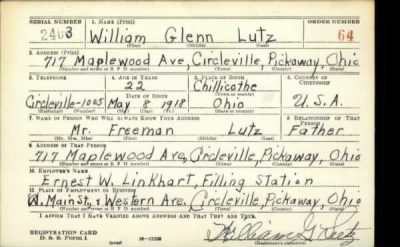 SERIAL NUMBER 1. NAME (Print) ORDER NUMBER
2403 William Glenn Lutz 64
(First) (Middle) (Last)
2. ADDRESS (Print)
717 Maplewood Ave, Circleville, Pickaway, Ohio
3. TELEPHONE 4. AGE IN YEARS 5. PLACE OF BIRTH 6. COUNTRY OF CITIZENSHIP
22 Chillicothe
DATE OF BIRTH (Town or county)
Circleville-1005 May 8 1918 Ohio U.S.A.
(Mo.) (Day) (Yr.) (State or country)
7. NAME OF PERSON WHO WILL ALWAYS KNOW YOUR ADDRESS 8. RELATIONSHIP OF THAT PERSON
Mr. Freeman Lutz Father
(Mr., Mrs., Miss) (First) (Middle) (Last)
9. ADDRESS OF THAT PERSON
717 Maplewood Ave, Circleville, Pickaway, Ohio
10. EMPLOYER'S NAME
Ernest W. Linkhart, Filling Station
11. PLACE OF EMPLOYMENT OR BUSINESS
W. Main St. & Western Ave, Circleville, Pickaway, Ohio
I AFFIRM THAT I HAVE VERIFIED ABOVE ANSWERS AND THAT THEY ARE TRUE.
REGISTRATION CARD
D. S. S. Form 1 William G Lutz
(Registrant's signature)